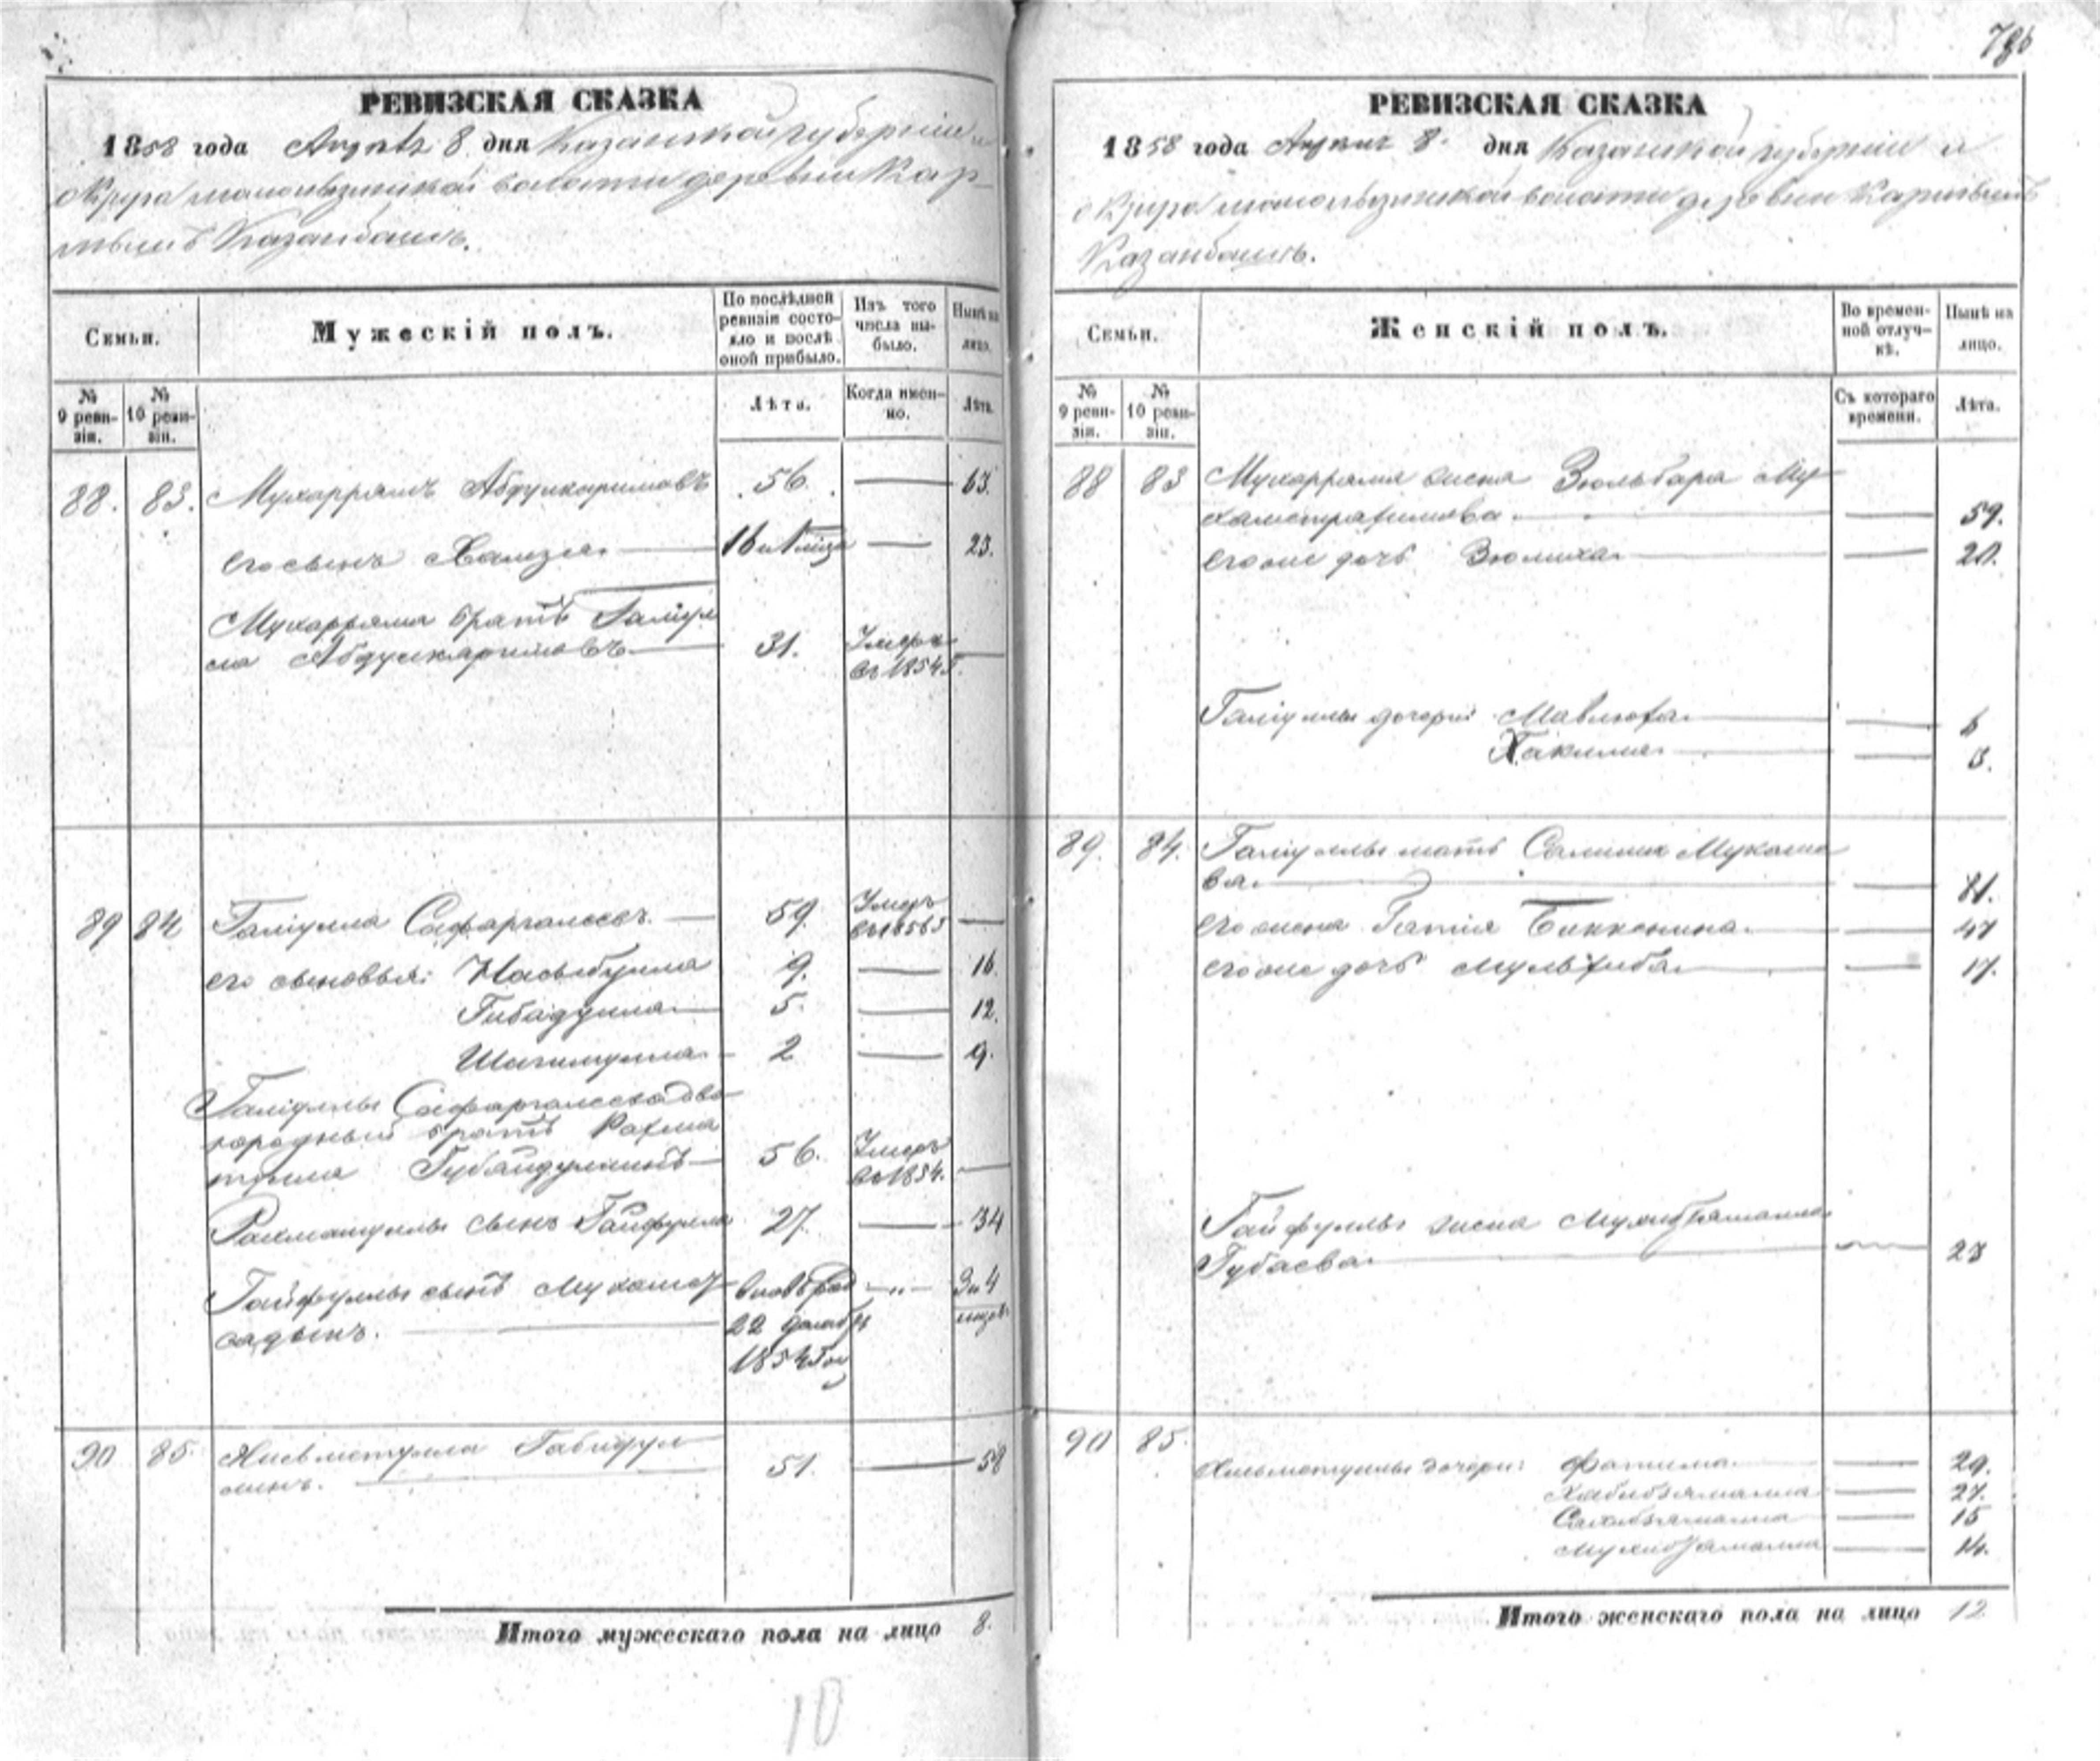 786
РЕВИЗСКАЯ СКАЗКА
1858 года Августа 8 дня Казанской губернии и
округа волости деревни Кар-
Казанбашъ.
Семьи.
Мужескій полъ.
По послѣдней ревизіи состояло и послѣ оной прибыло.
Изъ того числа выбыло.
Нынѣ на лицо.
№ 9 ревизіи.
№ 10 ревизіи.
Лѣта.
Когда именно.
Лѣта.
88. 83. Мухаррямъ Абдулкаримовъ 56. 63.
Его сынъ Хамза 16 23.
Мухарряма братъ Галіул
ла Абдулкаримовъ 31. Умеръ
въ 1854 г.
89 84 Галіулла Сафаргалеевъ 59. Умеръ
въ 1856
его сыновья: Насыбулла 9. 16.
Гибадулла 5. 12.
Шагимулла 2 9.
Галіуллы Сафаргалеева дво-
юродный братъ Рахма
тулла Губайдуллинъ 56. Умеръ
въ 1854.
Рахматуллы сынъ Гайфулла 27. 34
Гайфуллы сынъ Мухаме- вновь род 3 и 4
садыкъ. 22 декабря
1854 год
90 85. Нигьметулла Габидул
линъ. 51. 58
Итого мужескаго пола на лицо 8.
10
РЕВИЗСКАЯ СКАЗКА
1858 года Августа 8. дня Казанской губерніи и
округа волости деревни
Казанбашъ.
Семьи.
Женскій полъ.
Во временной отлучкѣ.
Нынѣ на лицо.
№ 9 ревизіи.
№ 10 ревизіи.
Съ котораго времени.
Лѣта.
88 83 Мухарряма жена Зюльбара Му-
хаметрахимова 59.
Его же дочь Зюлиха 20.
Галіуллы дочери: Мавлюха 6
Хакима 5.
89. 84. Галіуллы мать Салиха Мукаше
ва 81.
Его жена Гатія Биккенина 47
Его же дочь 17.
Гайфуллы жена
Губаева 28
90 85. Нигьметуллы дочери: Фатима 29.
Хабибзямалла 27.
15
14.
Итого женскаго пола на лицо 12